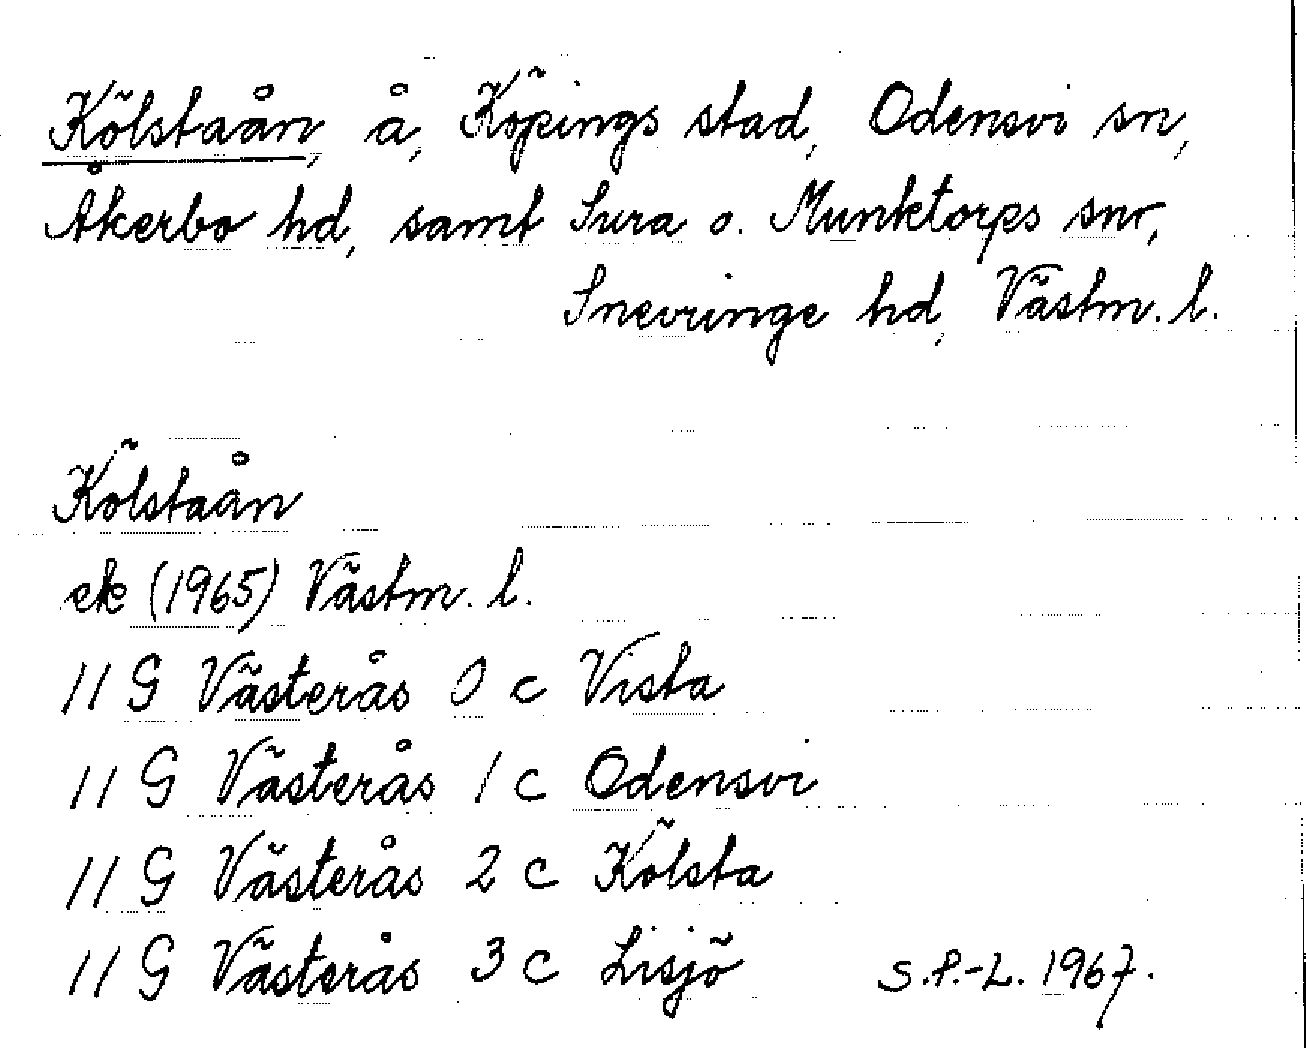 Kölstaån, å, Köpings stad, Odensvi sn,
Åkerbo hd, samt Sura o. Munktorps snr,
Snevringe hd, Västm. l.
Kölstaån
ek (1965) Västm. l.
11 G Västerås 0 c Vista
11 G Västerås 1 c Odensvi
11 G Västerås 2 c Kölsta
11 G Västerås 3 c Lisjö S.P.-L. 1967.